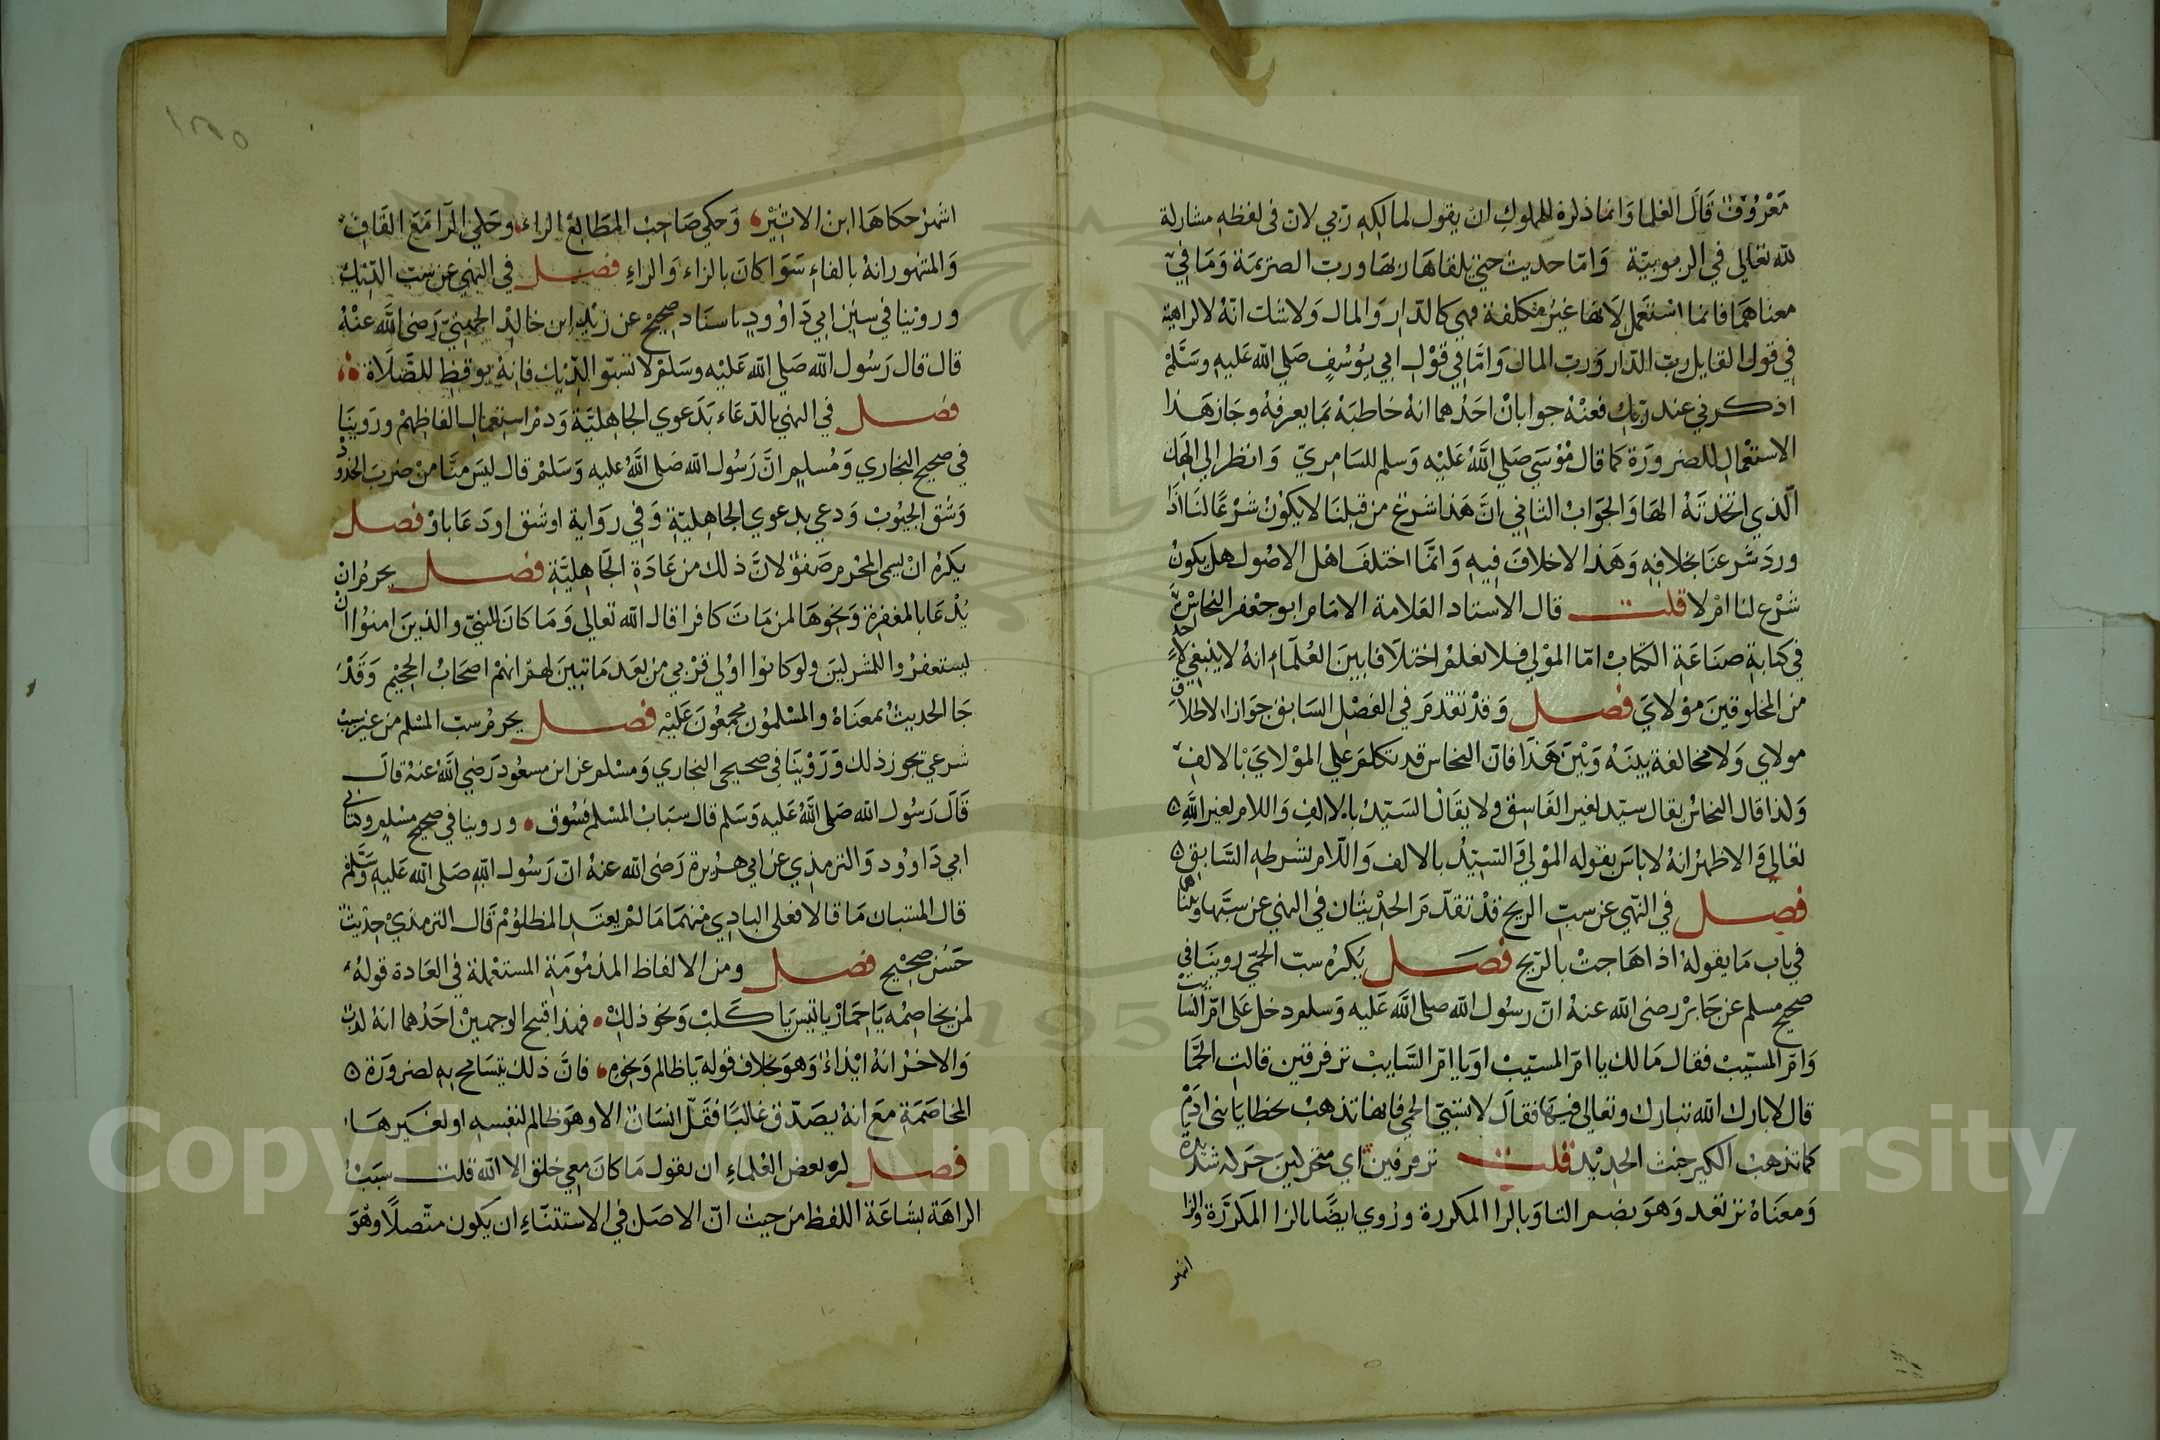 معروف قال العلما وانما ذكره للملوك ان يقول لمالكه ربي لان في لفظه مشاركة
لله تعالي في الربوبية وامّا حديث حتي يلقاها ربها ورب الصريمة وما في
معناهما فانما استعمل لانها غير مكلفة فهي كالدّار والمال ولا شك انه لا كراهية
في قول القايل ربّ الدّار ورب المال وامّا في قول ابي يوسف صلي الله عليه وسلم
اذكرني عند ربّك فعنه جوابان احدهما انه خاطبه بما يعرفه وجاز هذا
الاستعمال للضرورة كما قال موسي صَلي اللّه عليه وسلم للسامري وانظر الي الهك
الّذي اتخذته الها والجواب الثاني انّ هذا شرع من قبلنا لا يكون شرعا لنا اذا
ورد شرعنا بخلافه وهذا لاخلاف فيه وانّما اختلف اهل الاصول هل يكون
شرع لنا ام لا قلت قال الاستاد العلامة الامام ابو جعفر النحاس
في كتابه صناعة الكتاب امّا المولي فلا نعلم اختلافا بين العلماء انه لا ينبغي لاحد
من المخلوقين مولاي فصل وقد تقدم في الفصل السابق جواز الاطلاق
مولاي ولا مخالفة بينه وبين هذا فان النحاس قد تكلم علي المولاي بالالف
ولذا قال النحاس يقال سيّد لغير الفاسق ولا يقال السيّد بالالف واللام لغير الله ه
تعالي والاظهر انه لاباس بقوله المولي والسيّد بالالف واللام لشرطه السّابق ه
فصل في النّهي عن سبّ الريح قد تقدّم الحديثان في النهي عن سبّها وبيّناها
في باب ما يقوله اذا هاجت بالرّيح فصل يكره سبّ الحمّي روينا في
صحيح مسلم عن جابر رضي الله عنه انّ رسول الله صلي الله عليه وسلم دخل على امّ السّايب
وامّ المسيّب فقال مالك يا امّ المسيّب او يا امّ السّايب تزفزفين قالت الحمّا
قال لا بارك الله تبارك وتعالى فيها فقال لا تسبّي الحمي فانها تذهب خطايا بني ادم
كما تذهب الكير خبث الحديد قلت تزفزفين اي تتحركين حركة شديدة
ومعناه ترتعد وهو بضم التا وبالزا المكررة وروي ايضا بالرا المكررة والزا
اشهر
اشهر حكاها ابن الاثير وحكي صاحب المطالع الزاء وحكي الرا مع القاف
والمشهور انه بالفاء سوا كان بالزاء والراء فصل في النهي عن سبّ الدّيك
وروينا في سنن ابي داوود باسناد صحيح عن زيد ابن خالد الجهني رضي الله عنه
قال قال رسول الله صلي الله عليه وسلم لا تسبّوا الدّيك فانه يوقظ للصّلاة
فصل في النهي بالدّعاء بدعوي الجاهليّة وذم استعمال الفاظهم وروينا
في صحيح البخاري ومسلم انّ رسول الله صلى اللّه عليه وسلم قال ليس منّا من ضرب الخدود
وشق الجيوب ودعي بدعوي الجاهليّة وفي رواية او شق او دعا باو فصل
يكره ان يسمى المحرم صفر لانّ ذلك من عادة الجاهليّة فصل يحرم ان
يدعا بالمغفرة ونحوها لمن مات كافرا قال الله تعالي وما كان للنبيّ والذين امنوا ان
يستغفروا للمشركين ولو كانوا اولي قربي من بعد ما تبين لهم انهم اصحاب الجحيم وقد
جا الحديث بمعناه والمسلمون مجمعون عليه فصل يحرم سبّ المسلم من غير سبب
شرعي يجوز ذلك وروينا في صحيحي البخاري ومسلم عن ابن مسعود رضي اللّه عنه قال
قال رسول الله صلى اللّه عليه وسلم قال سباب المسلم فسوق وروينا في صحيح مسلم وكتابي
ابي داوود والترمذي عن ابي هريرة رضى الله عنه انّ رسول الله صلى الله عليه وسلم
قال المستبان ما قالا فعلى البادي منهما ما لم يعتد المظلوم قال الترمذي حديث
حسن صحيح فصل ومن الالفاظ المذمومة المستعملة في العادة قوله
لمن يخاصمه يا حمار يا تيس يا كلب ونحو ذلك فهذا قبيح لوجهين احدهما انه كذب
والاخر انه ايذاء وهو بخلاف قوله يا ظالم ونحوه فانّ ذلك يتسامح به لضرورة ه
المخاصمة مع انه يصدّق غالبا فقلّ انسان الا وهو ظالم لنفسه او لغيرها
فصل كره بعض العلماء ان يقول ما كان معي خلق الا الله قلت سبب
الراهة بشاعة اللفظ من حيث انّ الاصل في الاستثناء ان يكون متّصلا وهو
Copyright © King Saud University
1957